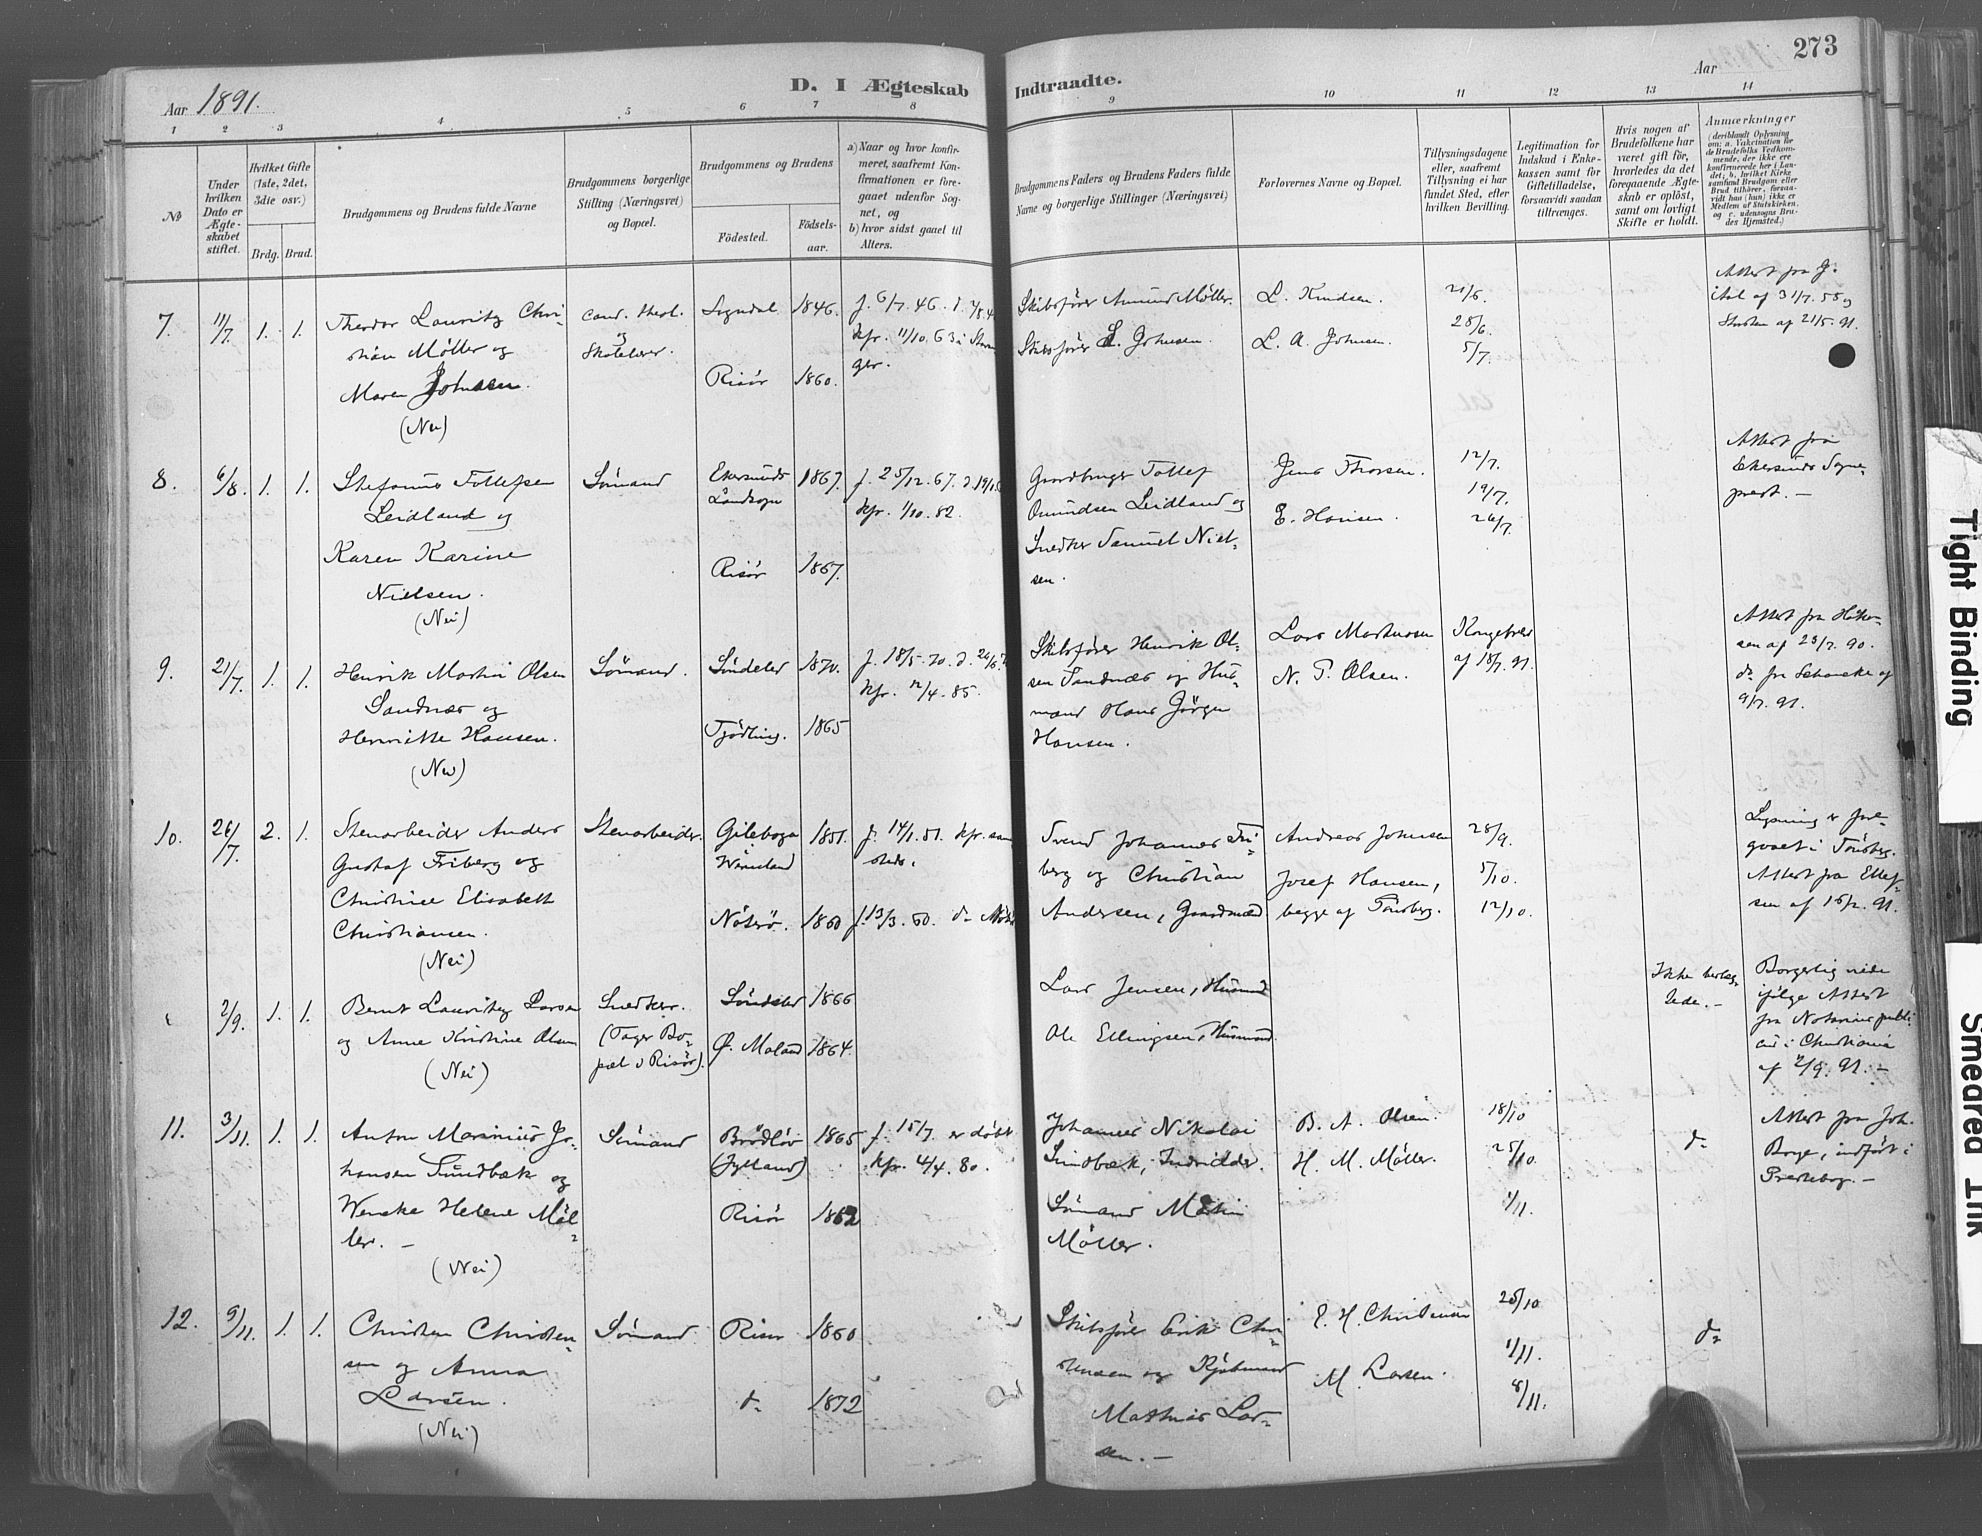 273
D. I Ægteskab Indtraadte.
Aar 1891.
Aar
1 2 3 4 5 6 7 8 9 10 11 12 13 14
No
Under hvilken Dato er Ægteskabet stiftet.
Hvilket Gifte (1ste, 2det, 3die osv.)
Brdg. Brud.
Brudgommens og Brudens fulde Navne
Brudgommens borgerlige Stilling (Næringsvei) og Bopæl.
Brudgommens og Brudens
Födested.
Födsels-aar.
a) Naar og hvor konfir-
meret, saafremt Kon-
firmationen er fore-
gaaet udenfor Sog-
net, og
b) hvor sidst gaaet til
Alters.
Brudgommens Faders og Brudens Faders fulde
Navne og borgerlige Stillinger (Næringsvei)
Forlovernes Navne og Bopæl.
Tillysningsdagene
eller, saafremt
Tillysning ei har
fundet Sted, efter
hvilken Bevilling.
Legitimation for
Indskud i Enke-
kassen samt for
Giftetilladelse,
forsaavidt saadan
tiltrænges.
Hvis nogen af
Brudefolkene har
været gift før,
hvorledes da det
foregaaende Ægte-
skab er oplöst,
samt om lovligt
Skifte er holdt.
Anmærkninger
(deriblandt Oplysning
om: a. Vakcination for
de Brudefolks Vedkom-
mende, der ikke ere
konfirmerede her i Lan-
det; b. hvilket Kirke
samfund Brudgom eller
Brud tilhörer, forsaa-
vidt han (hun) ikke er
Medlem af Statskirken,
og c. udensogns Bru-
des Hjemsted.)
7. 11/7 1. 1.
Theodor Lauritz Chri-
stian Möller og
Maren Johnsen.
(Nei)
cand. theol.
og
Skolelærer.
Sogndal 1846.
Risör 1860.
f. 6/7. 46.
kfr. 11/10. 63 i Stavan-
ger.
Skibsförer Amund Möller.
Skibsförer L. Johnsen.
L. Knudsen.
L. A. Johnsen.
21/6.
28/6.
5/7.
Attest fra
af 31/7. 55 og
af 21/5. 91.
8. 6/8. 1. 1.
Stefanus Tollefsen
Leidland og
Karen Karine
Nielsen.
(Nei)
Sömand
Ekersunds
Landsogn
1867.
Risör 1867.
f. 25/12. 67.
kfr. 1/10. 82.
Gaardbruger Tollef
Omundsen Leidland og
Snedker Samuel Niel-
sen.
Jens Thorsen.
E. Hansen.
12/7.
19/7.
26/7.
Attest fra
Ekersunds Sogne-
prest. –
9. 21/7. 1. 1.
Henrik Martin Olsen
Sandnæs og
Henriette Hansen.
(Nei)
Sömand.
Söndeled 1870.
Tjödling. 1865
f. 18/5. 70.
kfr. 12/4. 85.
Skibsförer Henrik Ol-
sen Sandnæs og Hus-
mand Hans Jörgen
Hansen.
Lars Martinsen
N. P. Olsen.
Kongebrev
af 18/7. 91.
Attest fra
af 23/7. 90.
do fra
9/7. 91.
10. 26/7. 2. 1.
Stenarbeider Anders
Gustaf Friberg og
Christine Elisabeth
Christiansen.
(Nei)
Stenarbeider.
Gileboga
Wermland
1851.
Nöterö. 1860
f. 14/1. 51. kfr. sam
steds.
f. 13/3. 60. do
Svend Johannes Fri-
berg og Christian
Andersen, Gaardmand
Andreas Johnsen
Josef Hansen,
begge af Tönsberg.
28/9.
5/10.
12/10.
Lysning er fore-
gaaet i Tönsberg.
Attest fra Ellef-
sen af 91.
2/9. 1. 1.
Bernt Lauritz Larsen
og Anne Kristine Olsen
(Nei)
Snedker.
(Tager Bo-
pæl i Risör).
Söndeled 1866
Ö. Moland 1864.
Lars Jensen, Husmand
Ole Ellingsen, Husmand.
Ikke
Borgerlig viede
ifölge Attest
fra Notarius publi-
cus i Christiania
af 2/9. 91. –
11. 3/11. 1. 1.
Anton Marinius Jo-
hansen Sundbæk og
Wencke Helene Möl-
ler. –
(Nei)
Sömand
Brödlöv
(Jylland)
1865
Risör 1862
f. 15/7. er döbt
kfr. 4/4. 80.
Johannes Nikolai
Sundbæk,
Sömand Martin
Möller.
B. A. Olsen.
H. M. Möller.
18/10
25/10.
1/11.
do
Attest fra Joh.
Borge, indfört i
Prestebog. –
12. 9/11. 1. 1.
Christen Christen-
sen og Anna
Larsen.
(Nei)
Sömand
Risör 1860
do 1872
Skibsförer Erik Chri-
stensen og Kjöbmand
Mathias Lar-
sen. –
E. H. Christensen
M. Larsen.
25/10
1/11.
8/11.
do
Tight Binding
Smeared Ink